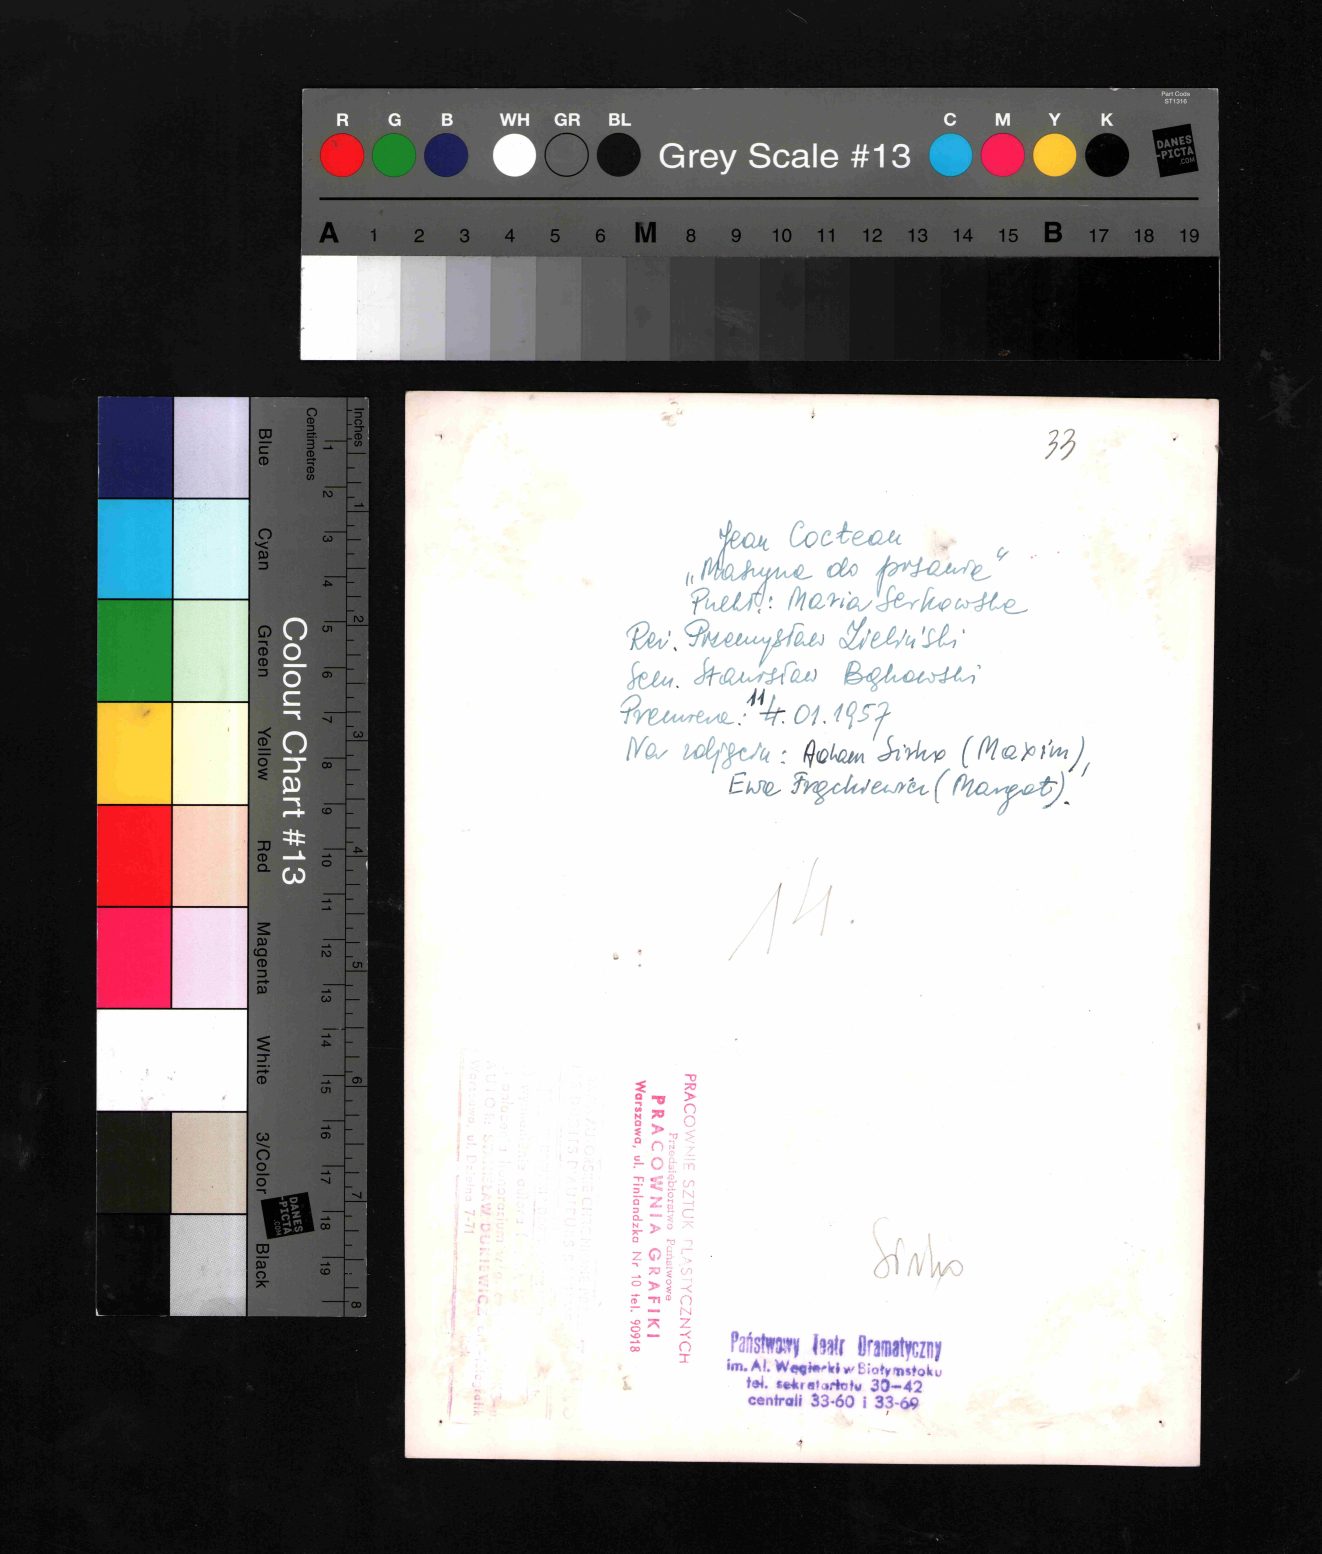 Part Code
ST1316
R G B WH GR BL Grey Scale #13 C M Y K
DANES
-PICTA
.COM
A 1 2 3 4 5 6 M 8 9 10 11 12 13 14 15 B 17 18 19
Colour Chart #13
Blue Cyan Green Yellow Red Magenta White 3/Color Black
Centimetres 1 2 3 4 5 6 7 8 9 10 11 12 13 14 15 16 17 18 19
Inches 1 2 3 4 5 6 7 8
DANES
-PICTA
.COM
33
Jean Cocteau
„Maszyna do pisania"
Przekł.: Maria Serkowska
Reż. Przemysław Zieliński
Scen. Stanisław Bąkowski
Premiera: 11 4.01.1957
Na zdjęciu: Adam Sirko (Maxim),
Ewa Frąckiewicz (Margot).
14.
PRACOWNIE SZTUK PLASTYCZNYCH
Przedsiębiorstwo Państwowe
PRACOWNIA GRAFIKI
Warszawa, ul. Finlandzka Nr 10 tel. 90918
Sirko
Państwowy Teatr Dramatyczny
im. Al. Węgierki w Białymstoku
tel. sekretariatu 30-42
centrali 33-60 i 33-69